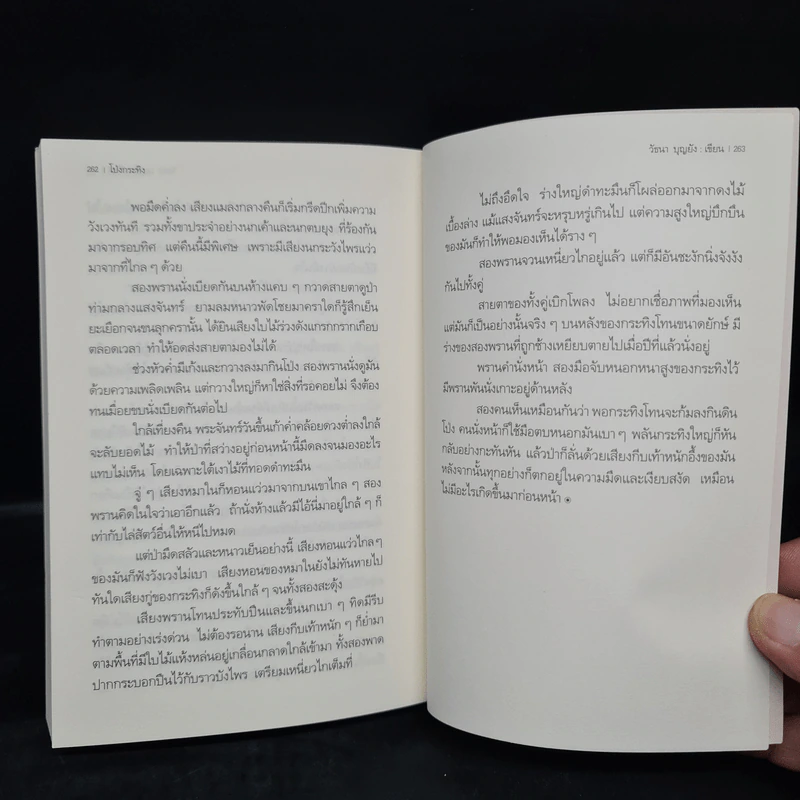 262 | โป่งกระทิง
พอมืดค่ำลง เสียงแมลงกลางคืนก็เริ่มกรีดปีกเพิ่มความ
วังเวงทันที รวมทั้งขาประจำอย่างนกเค้าและนกตบยุง ที่ร้องกัน
มาจากรอบทิศ แต่คืนนี้มีพิเศษ เพราะมีเสียงนกระวังไพรแว่ว
มาจากที่ไกล ๆ ด้วย
สองพรานนั่งเบียดกันบนห้างแคบ ๆ กวาดสายตาดูป่า
ท่ามกลางแสงจันทร์ ยามลมหนาวพัดโชยมาคราใดก็รู้สึกเย็น
ยะเยือกจนขนลุกครานั้น ได้ยินเสียงใบไม้ร่วงดังแกรกกรากเกือบ
ตลอดเวลา ทำให้อดส่งสายตามองไม่ได้
ช่วงหัวค่ำมีเก้งและกวางลงมากินโป่ง สองพรานนั่งดูมัน
ด้วยความเพลิดเพลิน แต่กวางใหญ่ก็หาใช่สิ่งที่รอคอยไม่ จึงต้อง
ทนเมื่อยขบนั่งเบียดกันต่อไป
ใกล้เที่ยงคืน พระจันทร์วันขึ้นเก้าค่ำคล้อยดวงต่ำลงใกล้
จะลับยอดไม้ ทำให้ป่าที่สว่างอยู่ก่อนหน้านี้มืดลงจนมองอะไร
แทบไม่เห็น โดยเฉพาะใต้เงาไม้ที่ทอดดำทะมึน
จู่ ๆ เสียงหมาในก็หอนแว่วมาจากบนเขาไกล ๆ สอง
พรานคิดในใจว่าเอาอีกแล้ว ถ้านั่งห้างแล้วมีไอ้นี่มาอยู่ใกล้ ๆ ก็
เท่ากับไล่สัตว์อื่นให้หนีไปหมด
แต่ป่ามืดสลัวและหนาวเย็นอย่างนี้ เสียงหอนแว่วไกล ๆ
ของมันก็ฟังวังเวงไม่เบา เสียงหอนของหมาในยังไม่ทันหายไป
ทันใดเสียงกู่ของกระทิงก็ดังขึ้นใกล้ ๆ จนทั้งสองสะดุ้ง
เสียงพรานโทนประทับปืนและขึ้นนกเบา ๆ ทิดมีรีบ
ทำตามอย่างเร่งด่วน ไม่ต้องรอนาน เสียงกีบเท้าหนัก ๆ ก็ย่ำมา
ตามพื้นที่มีใบไม้แห้งหล่นอยู่เกลื่อนกลาดใกล้เข้ามา ทั้งสองพาด
ปากกระบอกปืนไว้กับราวบังไพร เตรียมเหนี่ยวไกเต็มที่
วัธนา บุญยัง : เขียน | 263
ไม่ถึงอึดใจ ร่างใหญ่ดำทะมึนก็โผล่ออกมาจากดงไม้
เบื้องล่าง แม้แสงจันทร์จะหรุบหรู่เกินไป แต่ความสูงใหญ่บึกบึน
ของมันก็ทำให้พอมองเห็นได้ราง ๆ
สองพรานจวนเหนี่ยวไกอยู่แล้ว แต่ก็มีอันชะงักนิ่งจังงัง
กันไปทั้งคู่
สายตาของทั้งคู่เบิกโพลง ไม่อยากเชื่อภาพที่มองเห็น
แต่มันก็เป็นอย่างนั้นจริง ๆ บนหลังของกระทิงโทนขนาดยักษ์ มี
ร่างของสองพรานที่ถูกช้างเหยียบตายไปเมื่อปีที่แล้วนั่งอยู่
พรานคำนั่งหน้า สองมือจับหนอกหนาสูงของกระทิงไว้
มีพรานพันนั่งเกาะอยู่ด้านหลัง
สองคนเห็นเหมือนกันว่า พอกระทิงโทนจะก้มลงกินดิน
โป่ง คนนั่งหน้าก็ใช้มือตบหนอกมันเบา ๆ พลันกระทิงใหญ่ก็หัน
กลับอย่างกะทันหัน แล้วป่าก็ลั่นด้วยเสียงกีบเท้าหนักอึ้งของมัน
หลังจากนั้นทุกอย่างก็ตกอยู่ในความมืดและเงียบสงัด เหมือน
ไม่มีอะไรเกิดขึ้นมาก่อนหน้า